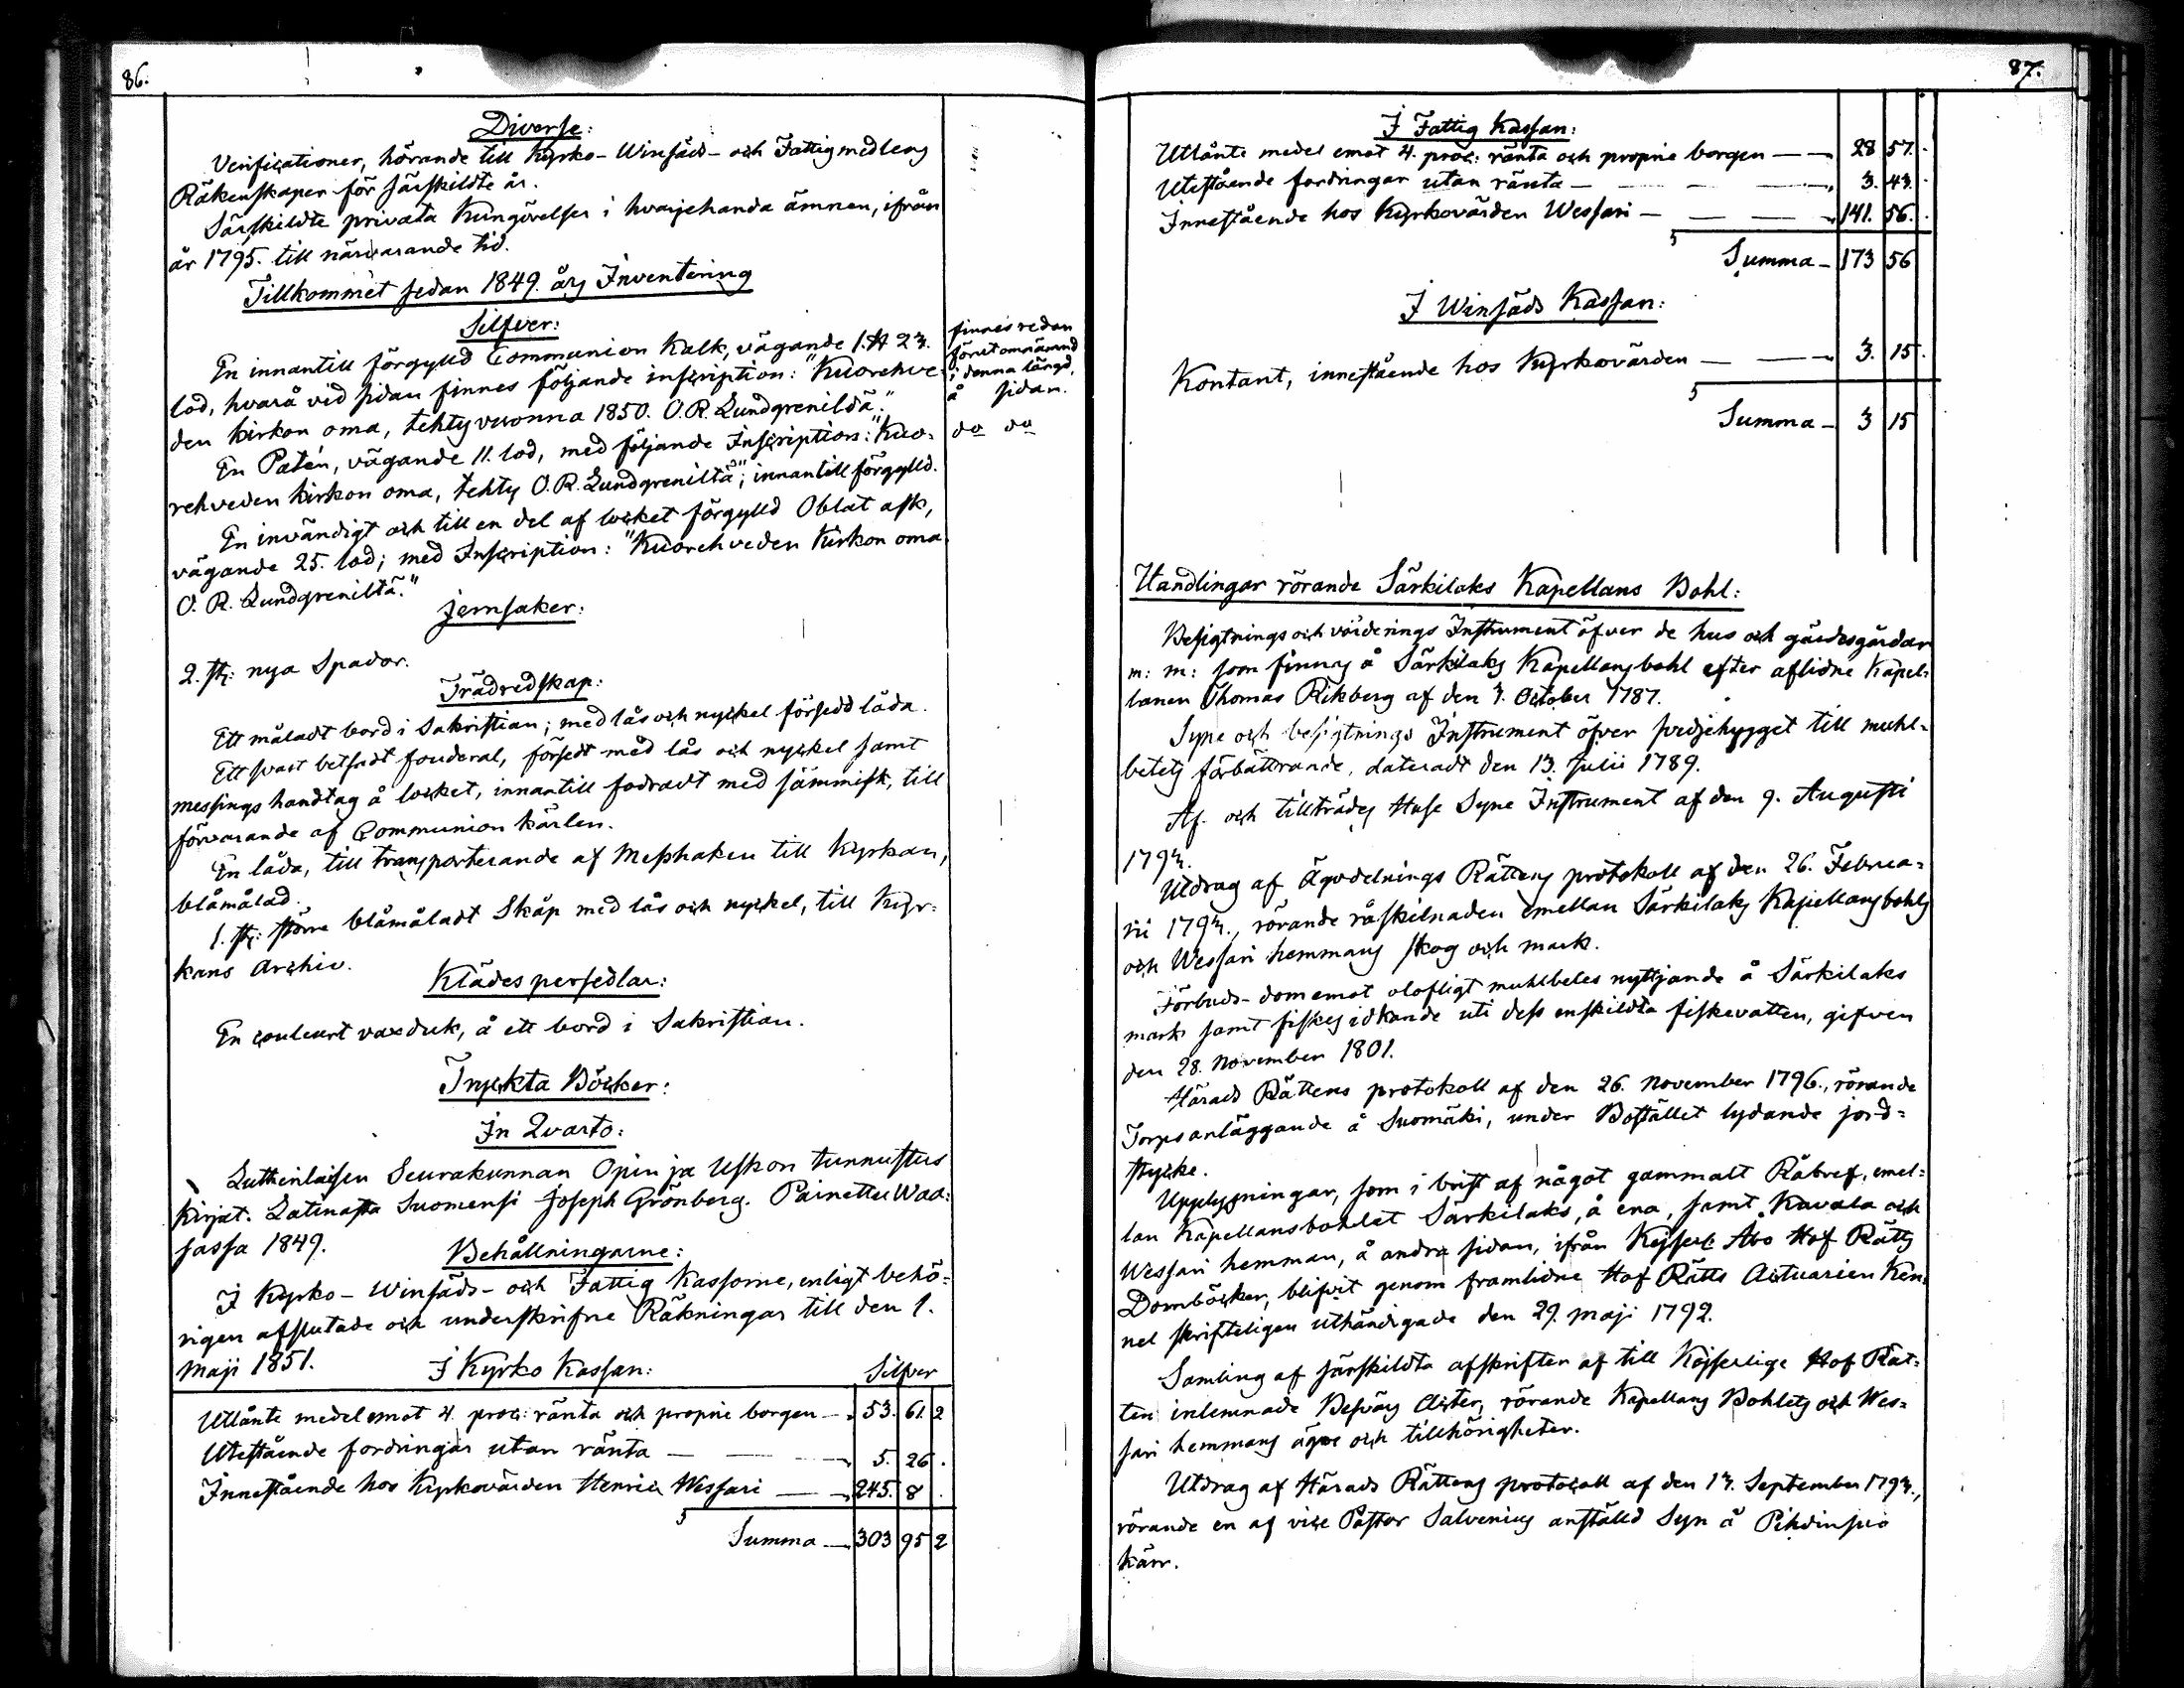 86.
Diverse:
Verificationer, hörande till Kyrko- Winsäds- och Fattigmedlens
Räkenskaper för särskildte år.
Särskildte privata Kungörelser i hvarjehanda ämnen, ifrån
år 1795. till närvarande tid.
Tillkommet sedan 1849. års Inventering
Silfver:
En innantill förgylld Communion Kalk, vägande 1. ℔ 23.
lod, hvarå vid sidan finnes följande inscription: "Kuorehve-
den kirkon oma, tehty vuonna 1850. O. R. Lundgrenildä."
En Patén, vägande 11. lod, med följande Inscription: "Kuo-
rehveden kirkon oma, tehty O. R. Lundgreniltä"; innantill förgylld.
En invändigt och till en del af locket förgylld Oblat ask,
vägande 25. lod; med Inscription: "Kuorehveden Kirkon oma
O. R. Lundgreniltä."
finnes redan
förut omnämnd
i denna längd,
å sidan.
do do
Jernsaker:
2. st: nya Spador.
Trädredskap:
Ett måladt bord i Sakristian; med lås och nyckel försedd låda.
Ett svart betsadt fouderal, försedt med lås och nyckel samt
messings handtag å locket, innantill fodradt med sämmisk, till
förvarande af Communion kärlen.
En låda, till transporterande af Messhaken till Kyrkan,
blåmålad.
1. st: större blåmåladt Skåp med lås och nyckel, till Kyr-
kans Archiv.
Klädespersedlar:
En couleurt vaxduk, å ett bord i Sakristian.
Tryckta Böcker:
In Qvarto:
Lutherilaisen Seurakunnan Opin ja Uskon tunnustus
kirjat. Latinasta Suomensi Joseph Grönberg. Painettu Waa-
sassa 1849.
Behållningarne:
I Kyrko- Winsäds- och Fattig Kassorne, enligt behö-
rigen afslutade och underskrifne Räkningar till den 1.
Maji 1851.
I Kyrko Kassan: Silfver
Utlånte medel emot 4. proc: ränta och proprie borgen — 53. 61. 2
Utestående fordringar utan ränta — — 5. 26.
Innestående hos Kyrkovärden Henric Wessari — 245. 8.
Summa — 303 95 2
87.
I Fattig Kassan:
Utlånte medel emot 4. proc: ränta och proprie borgen — 28 57.
Utestående fordringar utan ränta — — — 3. 43.
Innestående hos Kyrkovärden Wessari — — — 141. 56.
Summa — 173 56
I Winsäds Kassan:
Kontant, innestående hos Kyrkovärden — — 3. 15.
Summa — 3 15
Handlingar rörande Särkilaks Kapellans Bohl:
Besigtnings och värderings Instrument öfver de hus och gärdesgårdar
m: m: som finnas å Särkilaks Kapellansbohl efter aflidne Kapel-
lanen Thomas Rikberg af den 3. October 1787.
Syne och besigtnings Instrument öfver svedjehygget till muhl-
betets förbättrande, dateradt den 13. Julii 1789.
Af- och tillträdes Huse Syne Instrument af den 9. Augusti
1793.
Utdrag af Ägodelnings Rättens protokoll af den 26. Februa-
rii 1793., rörande råskilnaden emellan Särkilaks Kapellansbohls
och Wessari hemmans skog och mark.
Förbuds- dom emot olofligt muhlbetes nyttjande å Särkilaks
mark samt fiskes idkande uti dess enskildta fiskevatten, gifven
den 28. November 1801.
Härads Rättens protokoll af den 26. November 1796., rörande
Torps anläggande å Suomäki, under Bostället lydande jord-
stycke.
Upplysningar, som i brist af något gammalt Råbref, emel-
lan Kapellansbohlet Särkilaks, å ena, samt Kavala och
Wessari hemman, å andra sidan, ifrån Kejserl. Åbo Hof Rätts
Domböcker, blifvit genom framlidne Hof Rätts Actuarien Ken-
nel skrifteligen uthändigade den 29. Maji 1792.
Samling af särskildta afskrifter af till Kejserlige Hof Rät-
ten inlemnade Besvärs Acter, rörande Kapellans Bohlets och Wes-
sari hemmans ägor och tillhörigheter.
Utdrag af Härads Rättens protocoll af den 13. September 1793.,
rörande en af vice Pastor Salvenius anställd Syn å
kärr.